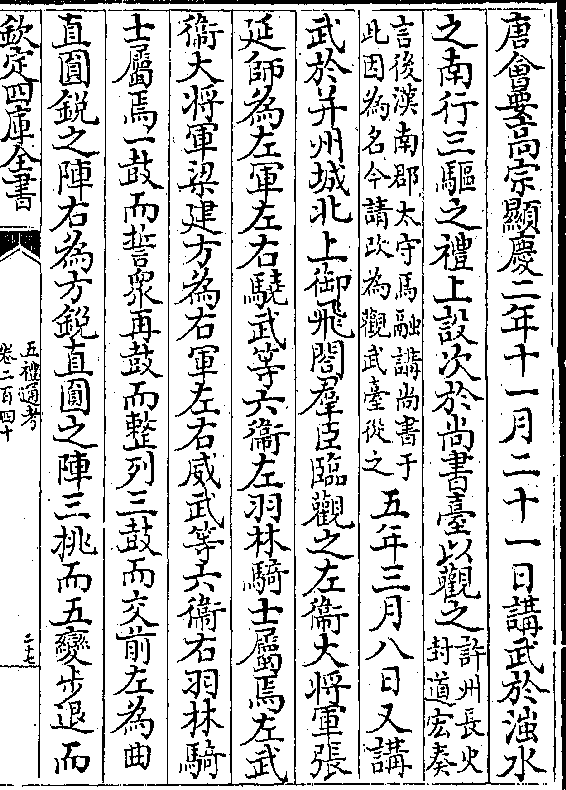 唐會要高宗顯慶二年十一月二十一日講武於滍水
之南行三驅之禮上設次於尚書臺以觀之許州長史封道宏奏
言後漢南郡太守馬融講尚書于此因為名今請改為觀武臺從之五年三月八日又講
武於并州城北上御飛閣羣臣臨觀之左衞大将軍張
延師為左軍左右驍武等六衞左羽林騎士屬焉左武
衞大将軍梁建方為右軍左右威武等六衞右羽林騎
士屬焉一鼓而誓衆再鼓而整列三鼓而交前左為曲
直圓銳之陣右為方銳直圓之陣三挑而五變步退而
欽定四庫全書
五禮通考
卷二百四十
二十七